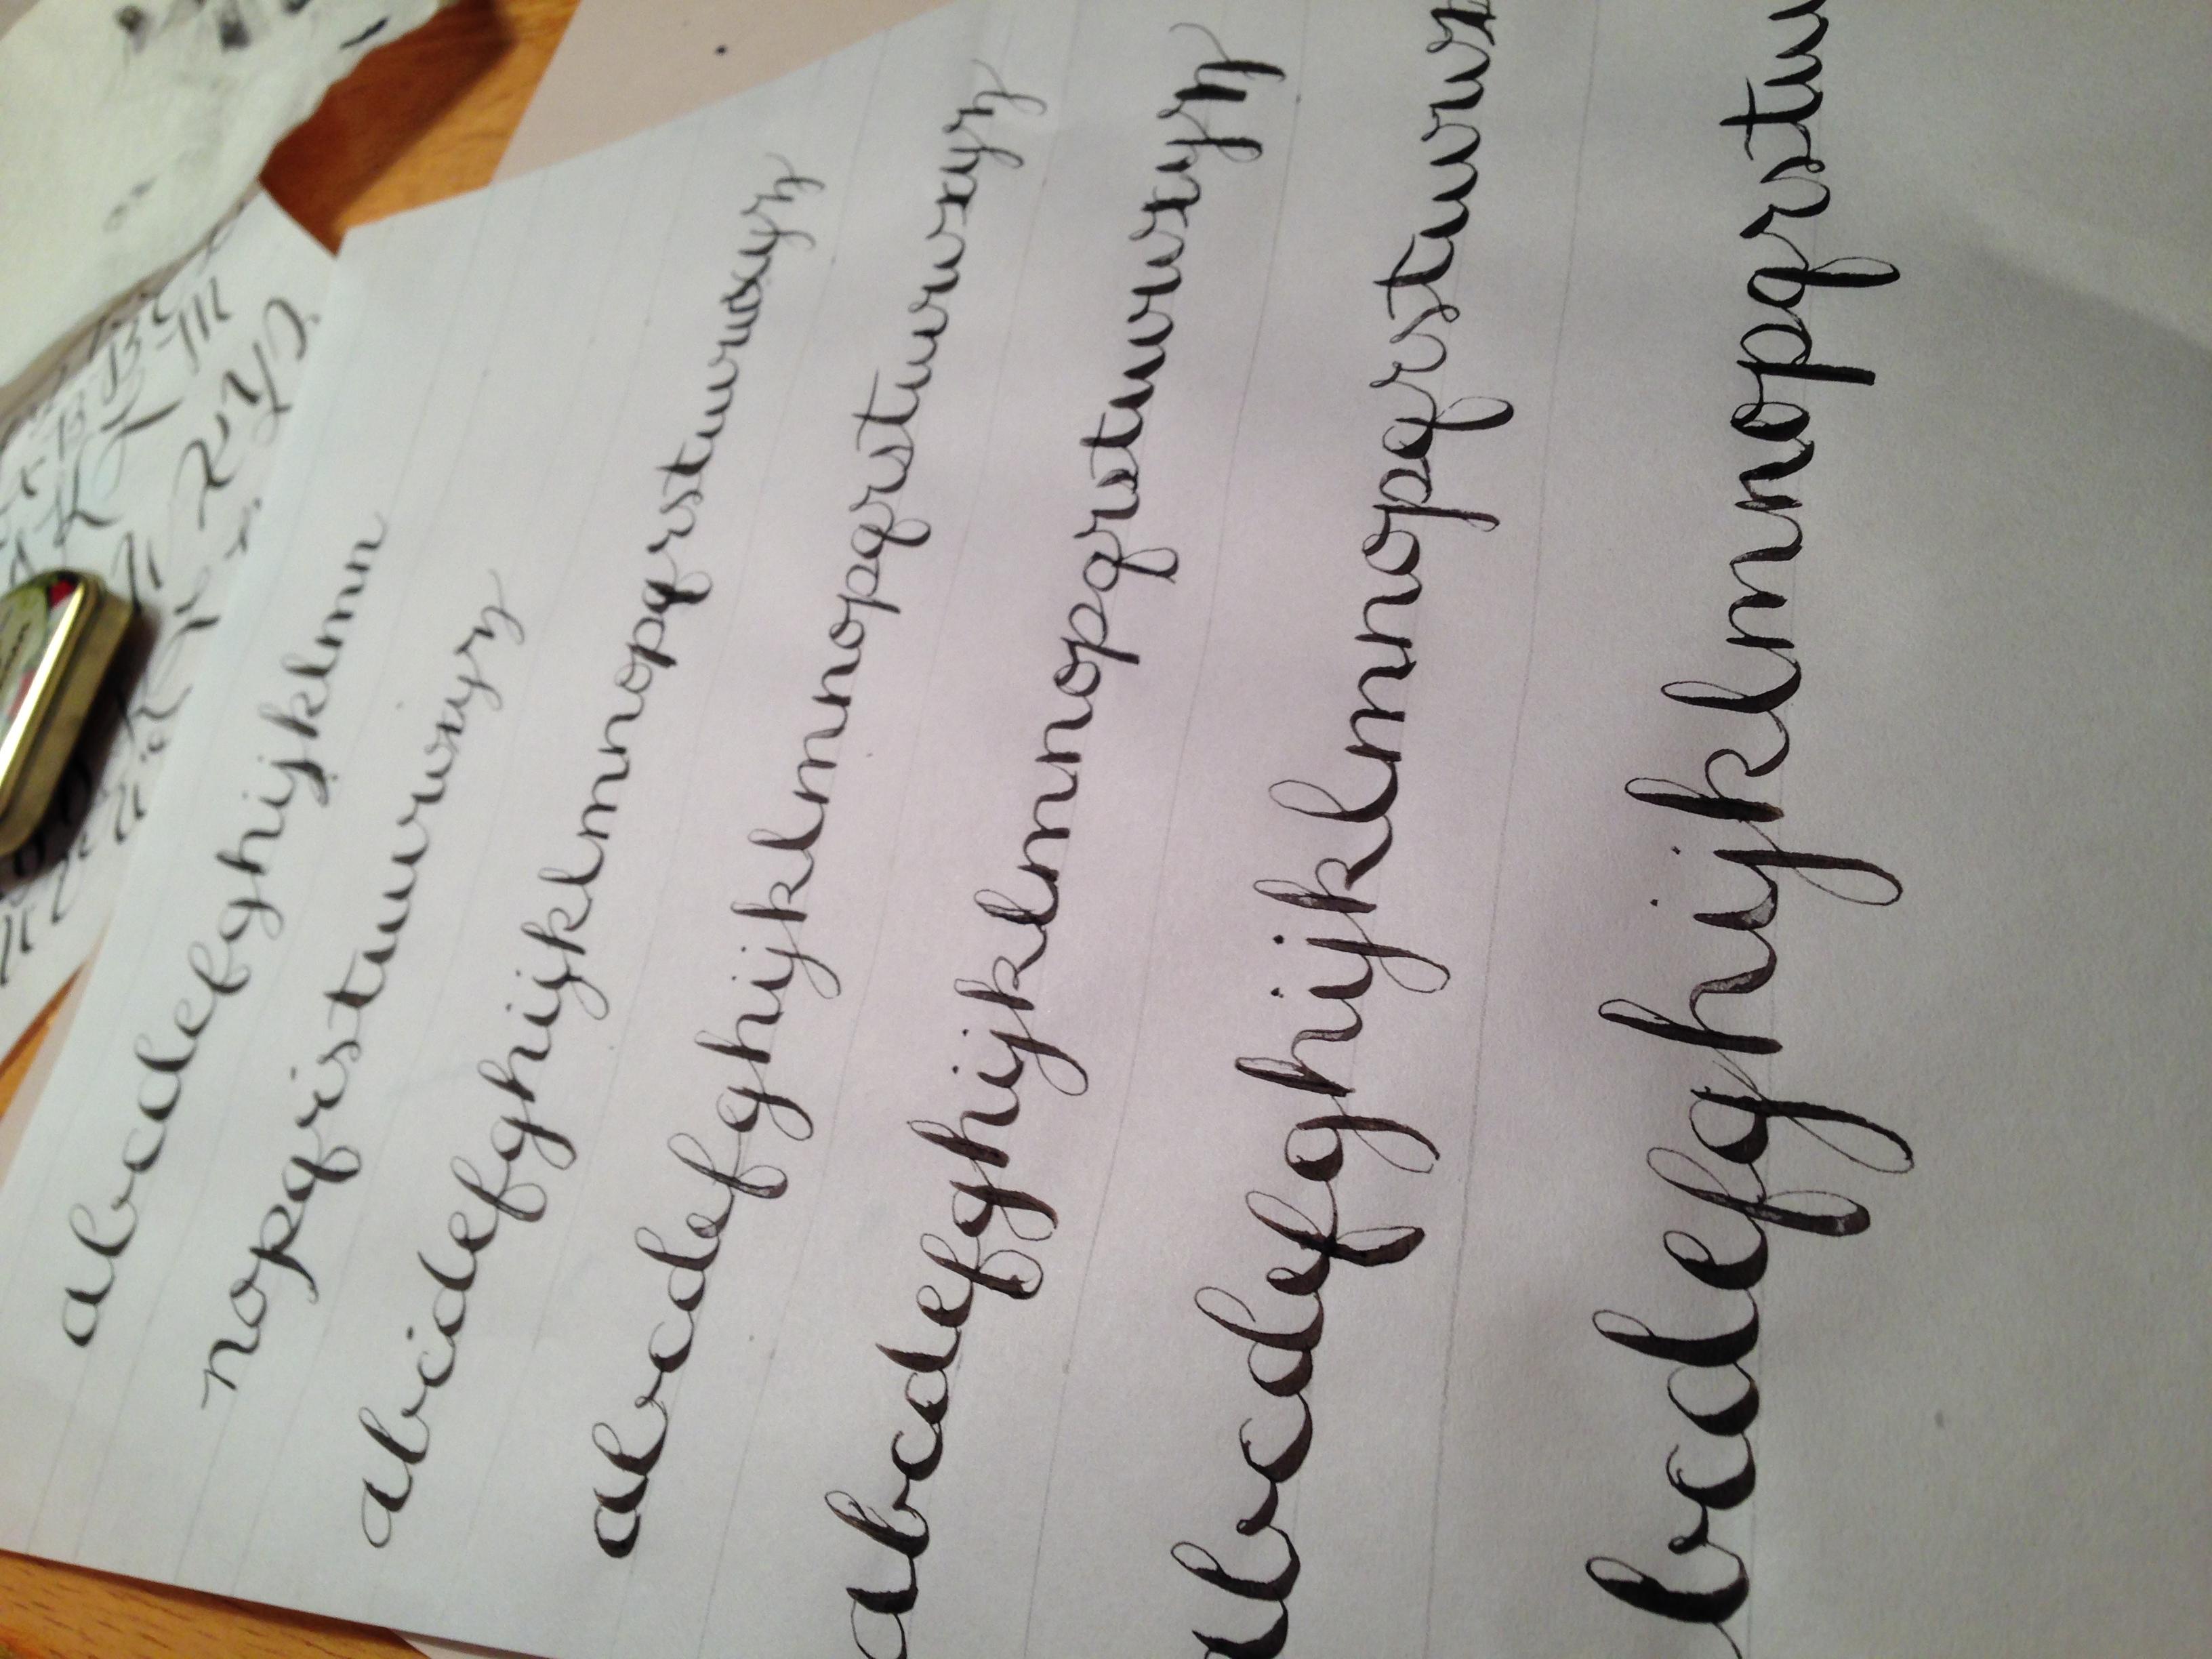 abcdefghijklmn
nopqrstuvwxyz
abcdefghijklmnopqrstuvwxyz
abcdefghijklmnopqrstuvwxyz
abcdefghijklmnopqrstuvwxyz
abcdefghijklmnopqrstuvwx
bcdefghijklmnopqrstuv